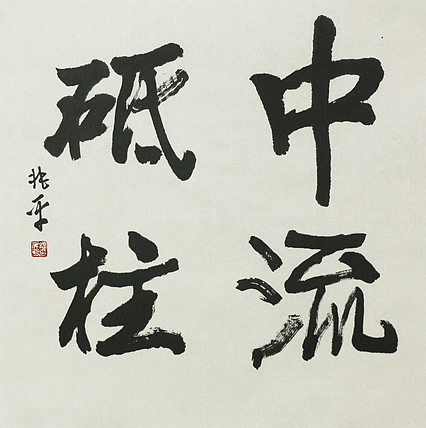 中流
砥柱
张平